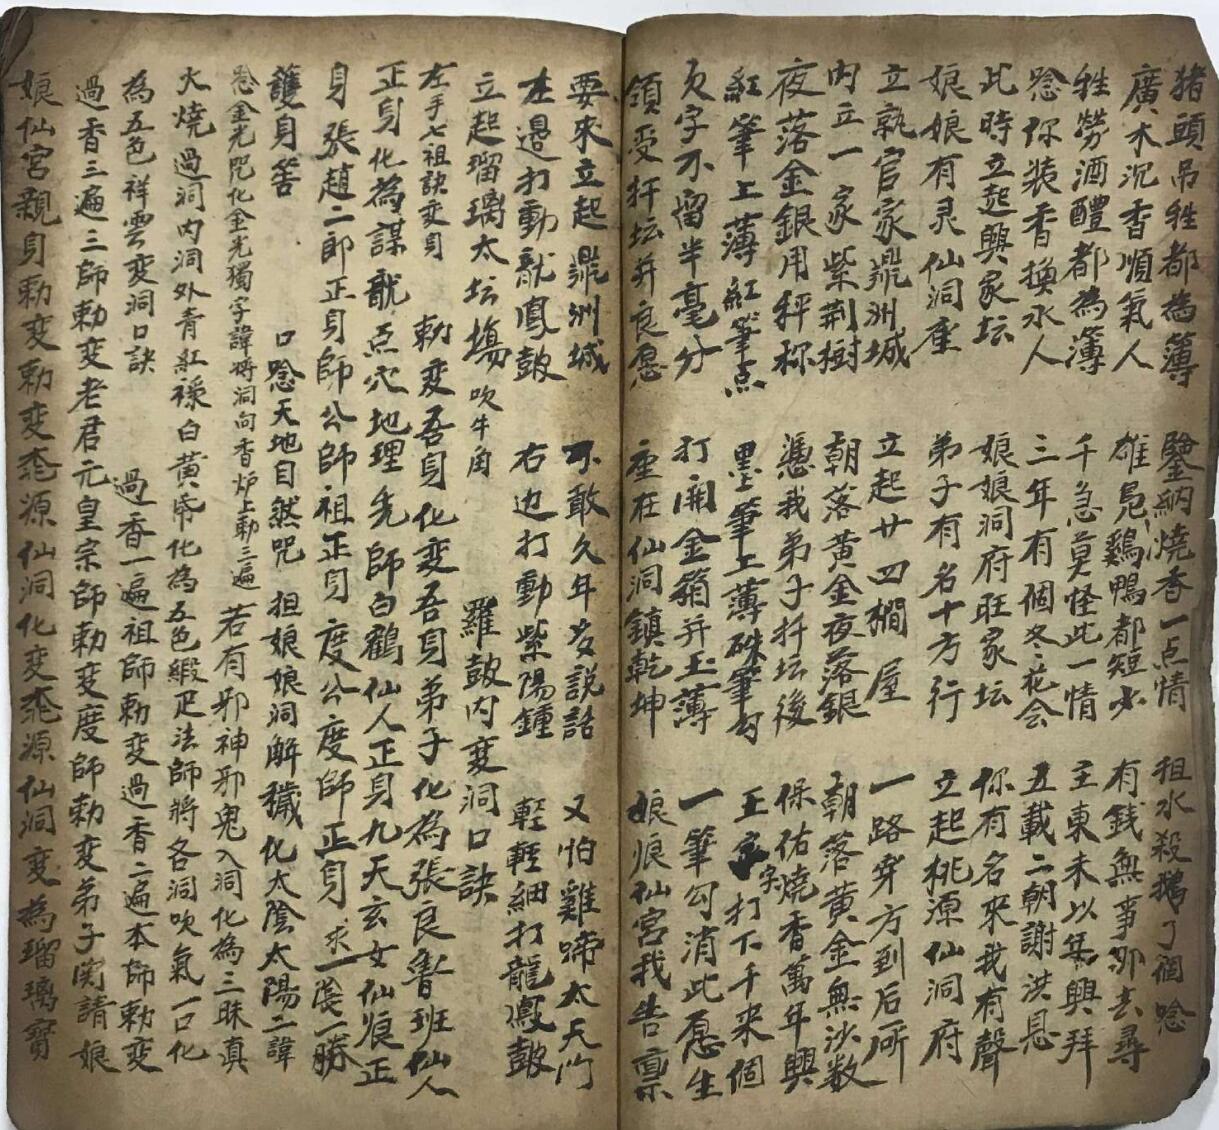 猪頭吊牲都為簿 鑒納燒香一点情 担水殺鵝了個唸
廣木沉香順氣人 雄鳧鷄鴨都短少 有銭無事那去尋
牲勞酒醴都為簿 千急莫怪此一情 主東未以集興拜
唸你装香換水人 三年有個冬花会 五載二朝謝洪恩
此時立起興家坛 娘娘洞府旺家坛 你有名來我有聲
娘娘有灵仙洞座 弟子有名十方行 立起桃源仙洞府
立孰官家鼎洲城 立起廿四櫚屋 一路穿方到后所
内立一家紫荆樹 朝落黄金夜落銀 朝落黄金無沙数
夜落金銀用秤称 憑我弟子扦坛後 保佑燒香萬年興
紅筆上薄紅筆点 墨筆上薄硃筆勾 王字打下千来個
欠字不留半毫分 打開金箱并玉薄 一筆勾消此愿生
領受扦坛并良愿 座在仙洞鎮乾坤 娘娘仙宮我告禀
要來立起鼎洲城 不敢久年多説話 又怕雞啼太天门
左邉打動龍鳳皷 右边打動紫陽鍾 輕輕細打龍鳳皷
立起瑠璃太坛場 吹牛角 羅皷内变洞口訣
左手七祖訣变身 勅変吾身化変吾身弟子化為張良魯班仙人
正身化為謀龍点穴地理先師白鶴仙人正身九天玄女仙娘正
身張趙二郎正身師公師祖正身度公度師正身求一陰一勝
護身筶 口唸天地自然咒 担娘娘洞解穢化太陰太陽二諱
唸金光咒化金光獨字諱将洞向香炉上勅三遍 若有邪神邪鬼入洞化為三昧真
火燒過洞内洞外青紅禄白黄帋化為五色緞疋法師将各洞吹氣一口化
為五色祥雲变洞口訣 過香一遍祖師勅変過香二遍本師勅変
過香三遍三師勅变老君元皇宗師勅变度師勅变弟子関請娘
娘仙宮親身勅变勅变桃源仙洞化变桃源仙洞变為瑠璃寳